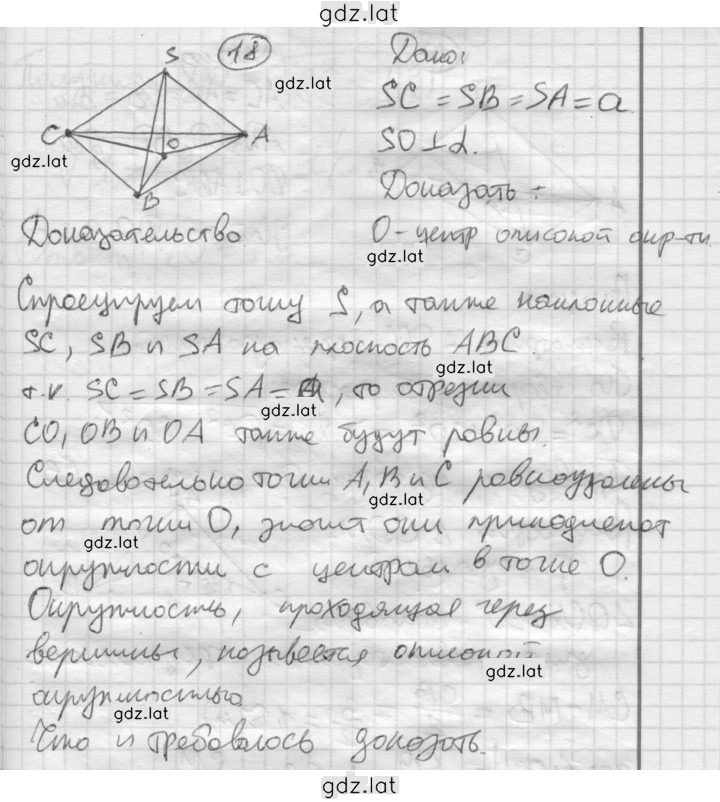 gdz.lat
18
Дано:
S
gdz.lat
SC = SB = SA = a
C
O
A
gdz.lat
SO ⊥ α.
Доказать:
B
Доказательство
O - центр описаной окр-ти
gdz.lat
Спроецируем точку S, а также наклонные
SC, SB и SA на плоскость ABC.
gdz.lat
т.к. SC = SB = SA = a, то отрезки
gdz.lat
CO, OB и OA также будут равны.
Следовательно точки A, B и C равноудалены
gdz.lat
от точки O, значит они принадлежат
gdz.lat
окружности с центром в точке O.
Окружность, проходящая через
вершины, называется описаной
gdz.lat
окружностью
gdz.lat
Что и требовалось доказать.
gdz.lat